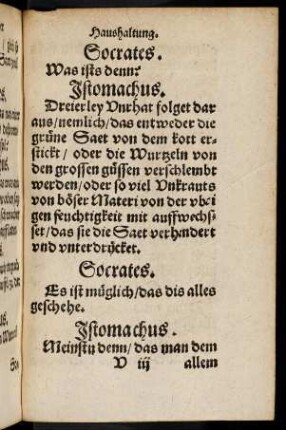 Haushaltung.
Socrates.
Was ists denn?
Jstomachus.
Dreierley Vnrhat folget dar
aus/nemlich/das entweder die
grüne Saet von dem kott er-
stickt / oder die Wurtzeln von
den grossen güssen verschlembt
werden/oder so viel Vnkrauts
von böser Materi von der vbri
gen feuchtigkeit mit auffwechs-
set/das sie die Saet verhindert
vnd vnterdrücket.
Socrates.
Es ist müglich/das dis alles
geschehe.
Jstomachus.
Meinstu denn/das man dem
V iij allem